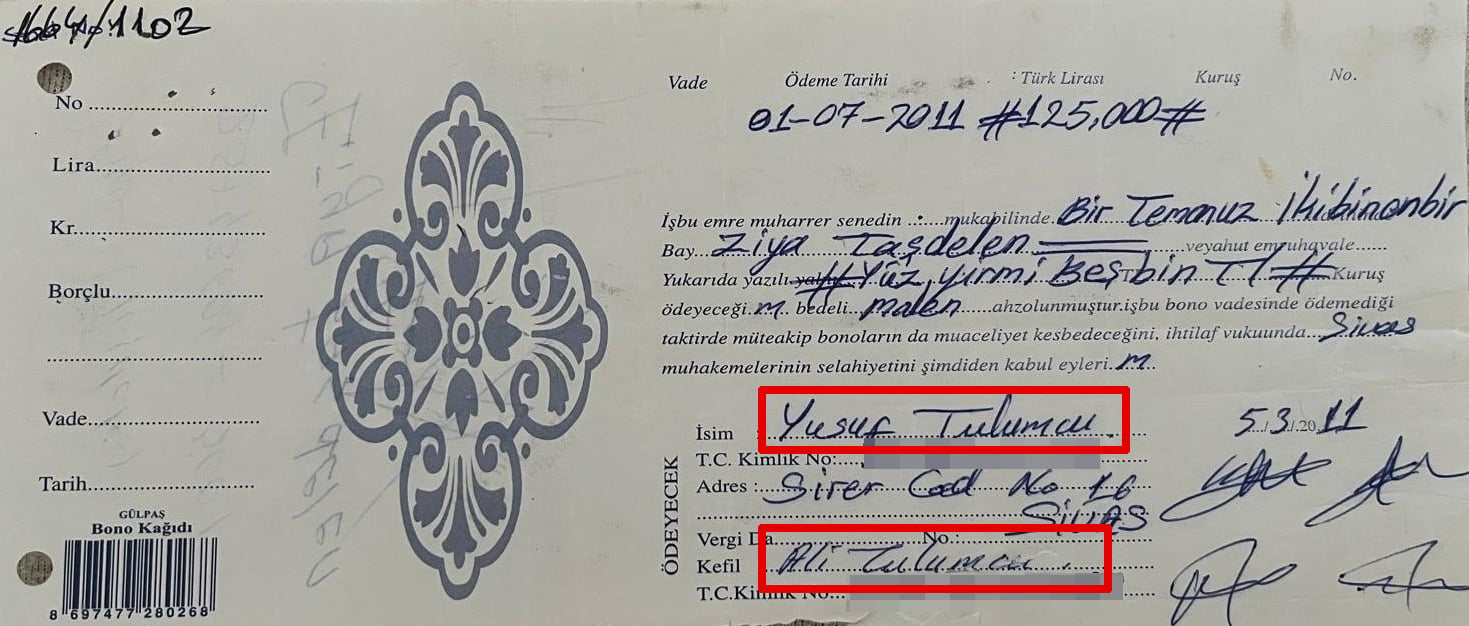 1664/1102
No
Lira
Kr.
Borçlu
Vade
Tarih
GÜLPAŞ
Bono Kağıdı
8 697477 280268
Vade Ödeme Tarihi Türk Lirası Kuruş No.
01-07-2011 #125,000#
İşbu emre muharrer senedin mukabilinde Bir Temmuz İkibinonbir
Bay Ziya Taşdelen veyahut emruhavale
Yukarıda yazılı #Yüz yirmi Beşbin Tl # Kuruş
ödeyeceği.m. bedeli malen ahzolunmuştur.işbu bono vadesinde ödemediği
taktirde müteakip bonoların da muaceliyet kesbedeceğini, ihtilaf vukuunda Sivas
muhakemelerinin selahiyetini şimdiden kabul eyleri.m.
ÖDEYECEK
İsim : Yusuf Tulumcu 5./3./.20.11
T.C. Kimlik No:
Adres : Sirer Cad No 16
SİVAS
Vergi Da. No.:
Kefil Ali Tulumcu
T.C.Kimlik No